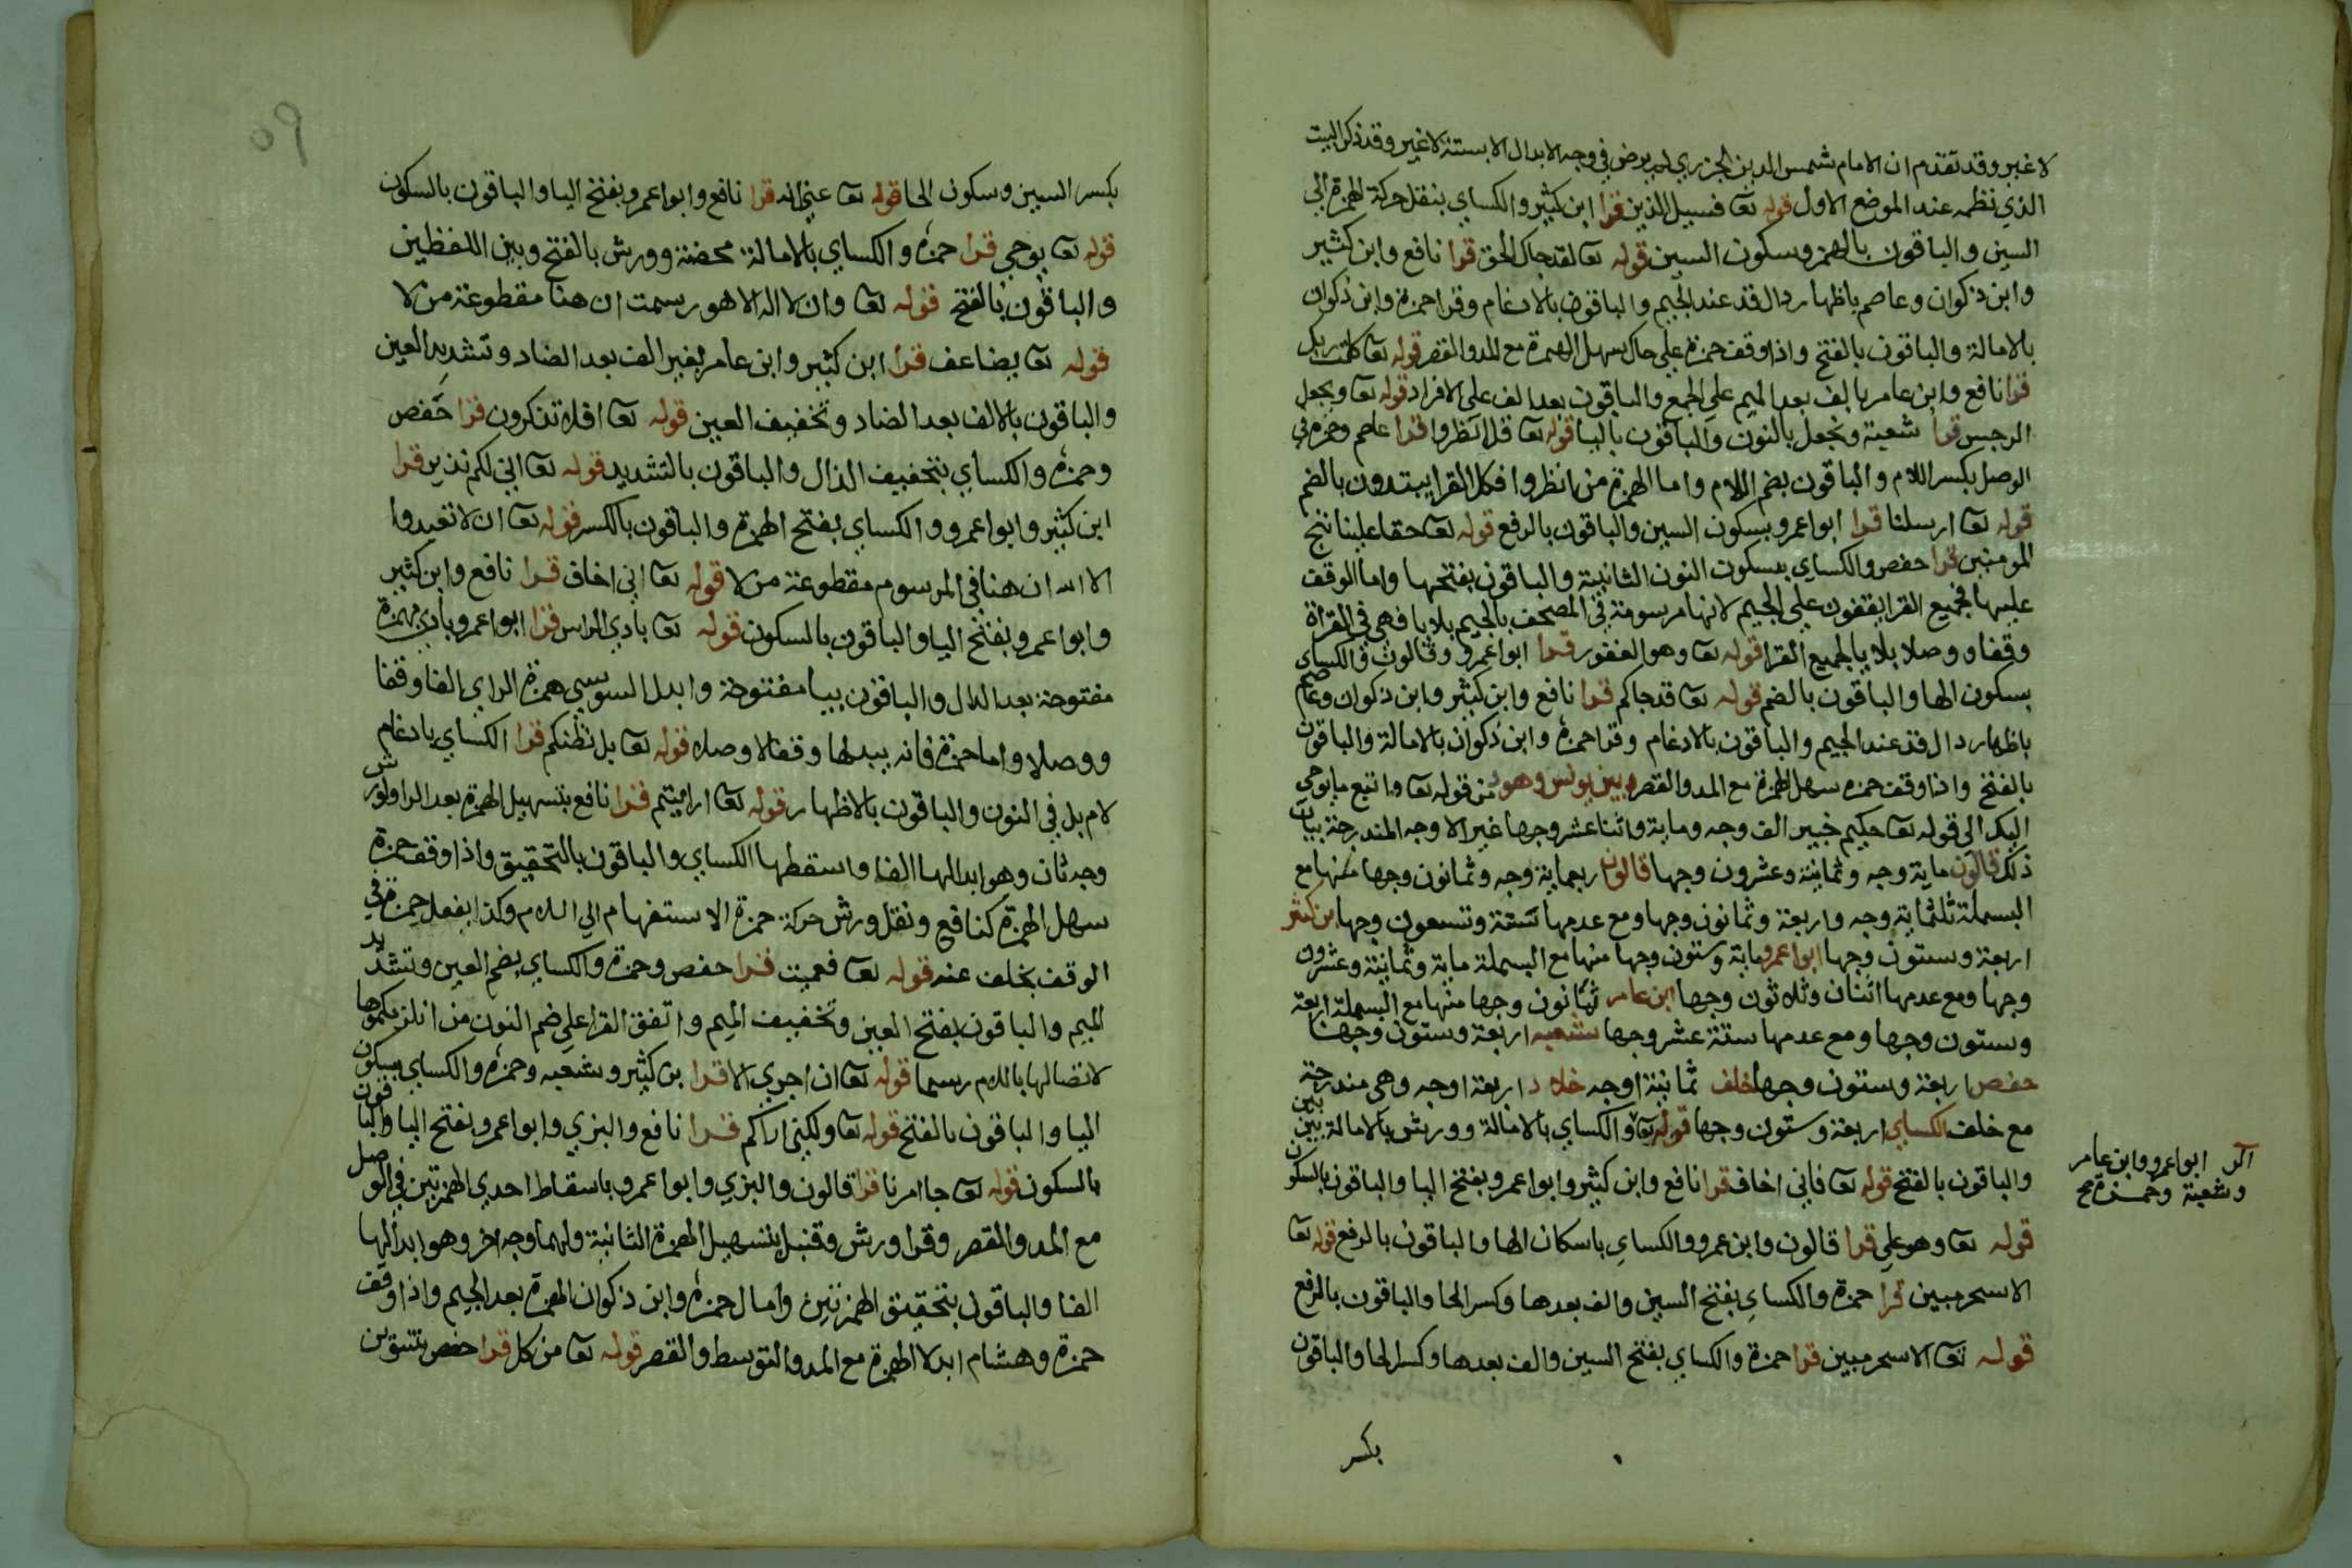 لا غير وقد تقدم ان الامام شمس الدين الجزري لم يرض في وجه الابدال الا بستة لا غير وقد ذكر البيت
الذي نظمه عند الموضع الاول قوله تعا فسيل الذين قرا ابن كثير والكساي بنقل حركة الهمزة الي
السين والباقون بالهمز وسكون السين قوله تعا لقد جاك الحق قرا نافع وابن كثير
وابن ذكوان وعاصم باظهار دال قد عند الجيم والباقون بالادغام وقرا حمزة وابن ذكوان
بالامالة والباقون بالفتح واذا وقف حمزة علي جاك سهل الهمزة مع المد والقصر قوله تعا كلمت ربك
قرا نافع وابن عامر بالف بعد الميم علي الجمع والباقون بعد الف علي الافراد قوله تعا ويجعل
الرجس قرا شعبة ونجعل بالنون والباقون باليا قوله تعا قل انظروا قرا عاصم وحمزة في
الوصل بكسر اللام والباقون بضم اللام واما الهمزة من انظروا فكل القرا يبتدون بالضم
قوله تعا ارسلنا قرا ابوا عمرو بسكون السين والباقون بالرفع قوله تعا حقا علينا ننج
المومنين قرا حفص والكساي بسكون النون الثانية والباقون بفتحها واما الوقف
عليها فجميع القرا يقفون علي الجيم لانها مرسومة في المصحف بالجيم بلا يا فهي في القراة
وقفا ووصلا بلا يا لجميع القرا قوله تعا وهو الغفور قرا ابوا عمرو وقالون والكساي
بسكون الها والباقون بالضم قوله تعا قد جاكم قرا نافع وابن كثير وابن ذكوان وعاصم
باظهار دال قد عند الجيم والباقون بالادغام وقرا حمزة وابن ذكوان بالامالة والباقون
بالفتح واذا وقف حمزه سهل الهمزة مع المد والقصر وبين يونس وهود من قوله تعا واتبع ما يوحي
اليك الي قوله تعا حكيم خبير الف وجه وماية واثنا عشر وجها غير الاوجه المندرجة بيان
ذلك قالون ماية وجه وثمانية وعشرون وجها قالون اربعماية وجه وثمانون وجها منها مع
البسملة ثلثماية وجه واربعة وثمانون وجها ومع عدمها ستة وتسعون وجها ابن كثير
اربعة وستون وجها ابوا عمرو ماية وستون وجها منها مع البسملة ماية وثمانية وعشرون
وجها ومع عدمها اثنان وثلاثون وجها ابن عامر ثمانون وجها منها مع البسملة اربعة
وستون وجها ومع عدمها ستة عشر وجها شعبه اربعة وستون وجها
حفص اربعة وستون وجها خلف ثمانية اوجه خلاد اربعة اوجه وهي مندرجة
مع خلف الكساي اربعة وستون وجها قوله تعا والكساي بالامالة وورش بالامالة بين بين
والباقون بالفتح قوله تعا فاني اخاف قرا نافع وابن كثير وابوا عمرو بفتح اليا والباقون بالسكون
قوله تعا وهو علي قرا قالون وابن عمرو والكساي باسكان الها والباقون بالرفع قوله تعا
الا سحر مبين قرا حمزة والكساي بفتح السين والف بعدها وكسر الحا والباقون بالرفع
قوله تعا الا سحر مبين قرا حمزة والكساي بفتح السين والف بعدها وكسر الحا والباقون
بكسر
الر ابوا عمرو وابن عامر
وشعبة وحمزة صح
بكسر السين وسكون الحا قوله تعا عني انه قرا نافع وابوا عمرو بفتح اليا والباقون بالسكون
قوله تعا يوحي قرا حمزة والكساي بالامالة محضة وورش بالفتح وبين اللفظين
والباقون بالفتح قوله تعا وان لا اله الا هو رسمت ان هنا مقطوعة من لا
قوله تعا يضاعف قرا ابن كثير وابن عامر بغير الف بعد الضاد وتشديد العين
والباقون بالالف بعد الضاد وتخفيف العين قوله تعا افلا تذكرون قرا حفص
وحمزة والكساي بتخفيف الذال والباقون بالتشديد قوله تعا اني لكم نذير قرا
ابن كثير وابوا عمرو والكساي بفتح الهمزة والباقون بالكسر قوله تعا ان لا تعبدوا
الا الله ان هنا في المرسوم مقطوعة من لا قوله تعا اني اخاف قرا نافع وابن كثير
وابوا عمرو بفتح اليا والباقون بالسكون قوله تعا بادي الراس قرا ابوا عمرو بادي بهمزة
مفتوحة بعد الدال والباقون بيا مفتوحة وابدل السوسي همزة الراي الفا وقفا
ووصلا واما حمزة فانه يبدلها وقفا لا وصلا قوله تعا بل نظنكم قرا الكساي بادغام
لام بل في النون والباقون بالاظهار قوله تعا ارايتم قرا نافع بتسهيل الهمزة بعد الرا ولورش
وجه ثان وهو ابدالها الفا واسقطها الكساي والباقون بالتحقيق واذا وقف حمزة
سهل الهمزة كنافع ونقل ورش حركة حمزة الاستفهام الي اللام وكذا يفعل حمزة في
الوقف بخلف عنه قوله تعا فعميت قرا حفص وحمزة والكساي بضم العين وتشديد
الميم والباقون بفتح العين وتخفيف الميم واتفق القرا علي ضم النون من انلزمكموها
لاتصالها باللام رسما قوله تعا ان اجري الا قرا بن كثير وشعبه وحمزة والكساي بسكون
اليا والباقون بالفتح قوله تعا ولكني اراكم قرا نافع والبزي وابوا عمرو بفتح اليا والباقون
بالسكون قوله تعا جا امرنا قرا قالون والبزي وابوا عمرو باسقاط احدي الهمزتين في الوصل
مع المد والقصر وقرا ورش وقنبل بتسهيل الهمزة الثانية ولهما وجه اخر وهو ابدالها
الفا والباقون بتحقيق الهمزتين وامال حمزة وابن ذكوان الهمزة بعد الجيم واذا وقف
حمزة وهشام ابدلا الهمزة مع المد والتوسط والقصر قوله تعا من كل قرا حفص بتنوين